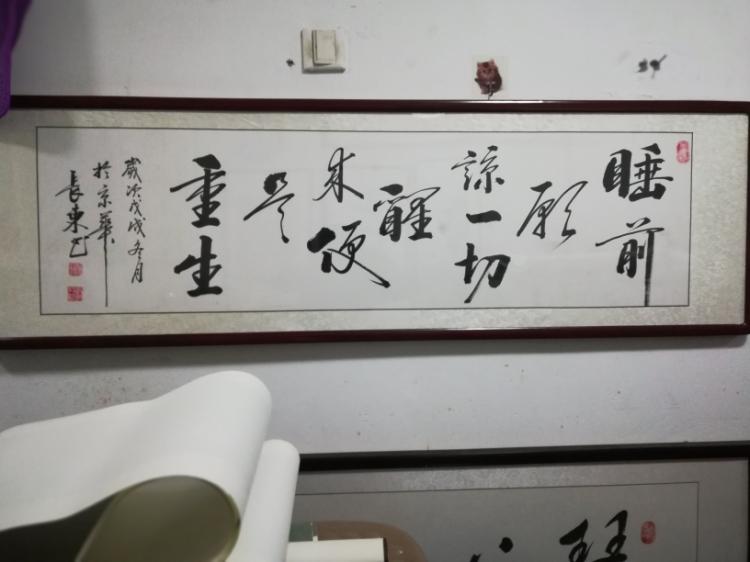 睡前
願
諒一切
醒
来便
是
重生
歲次戊戌冬月
於京華
長東书